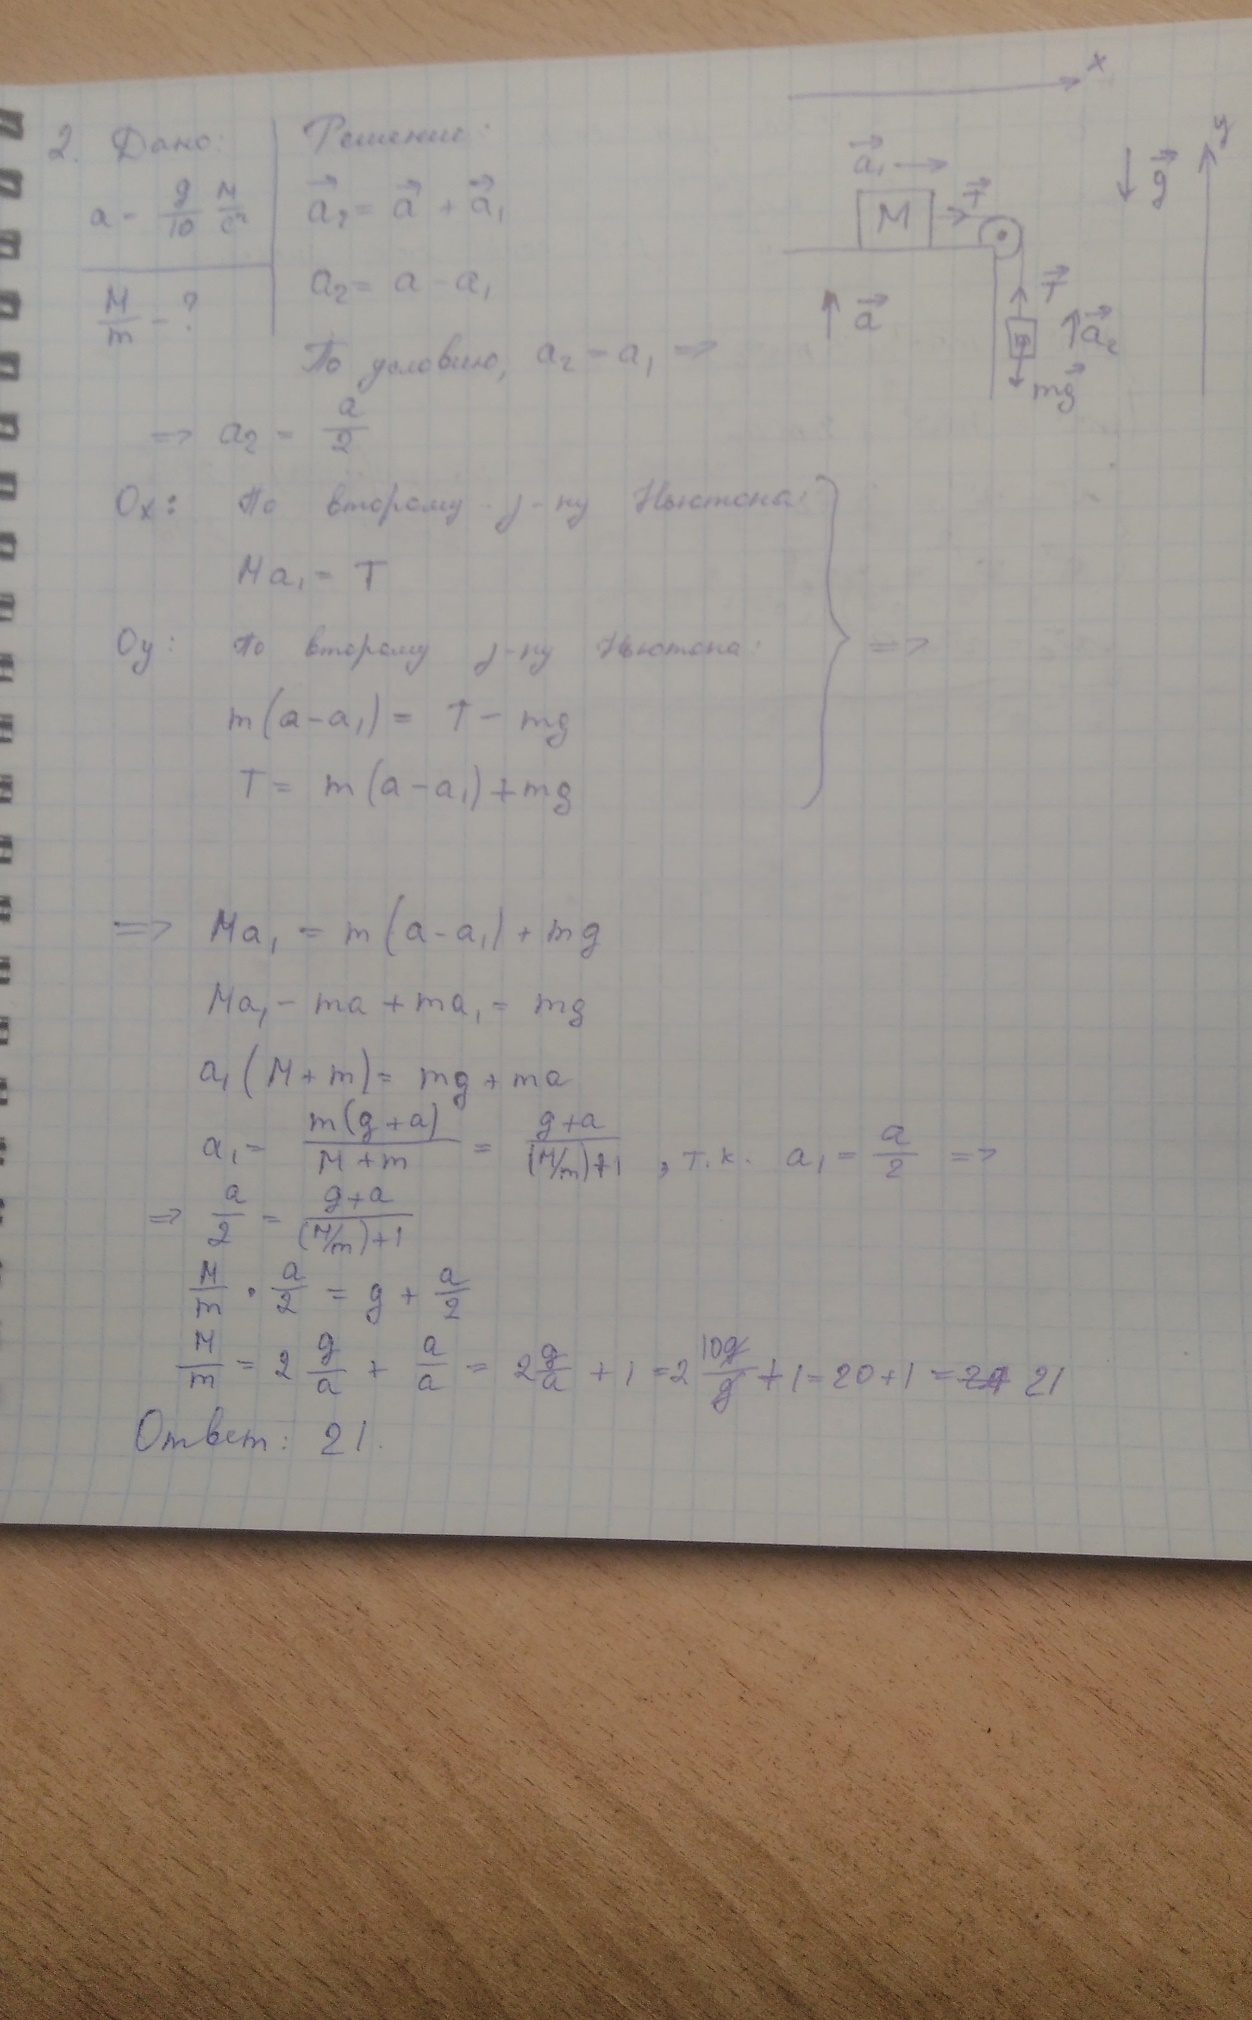 2. Дано:
a = g/10 м/с²
M/m - ?
Решение:
a⃗₂ = a⃗ + a⃗₁
a₂ = a - a₁
По условию, a₂ = a₁ =>
=> a₂ = a/2
x
y
a⃗₁
M
T⃗
g⃗
a⃗
T⃗
a⃗₂
mg⃗
Ox: По второму з-ну Ньютона:
Ma₁ = T
Oy: По второму з-ну Ньютона:
=>
m(a-a₁) = T - mg
T = m(a-a₁)+mg
=> Ma₁ = m(a-a₁)+mg
Ma₁ - ma + ma₁ = mg
a₁(M+m) = mg+ma
a₁ = m(g+a)/(M+m) = (g+a)/((M/m)+1), т.к. a₁ = a/2 =>
=> a/2 = (g+a)/((M/m)+1)
M/m · a/2 = g + a/2
M/m = 2 g/a + a/a = 2 g/a + 1 = 2 10g/g + 1 = 20+1 = 21
Ответ: 21.